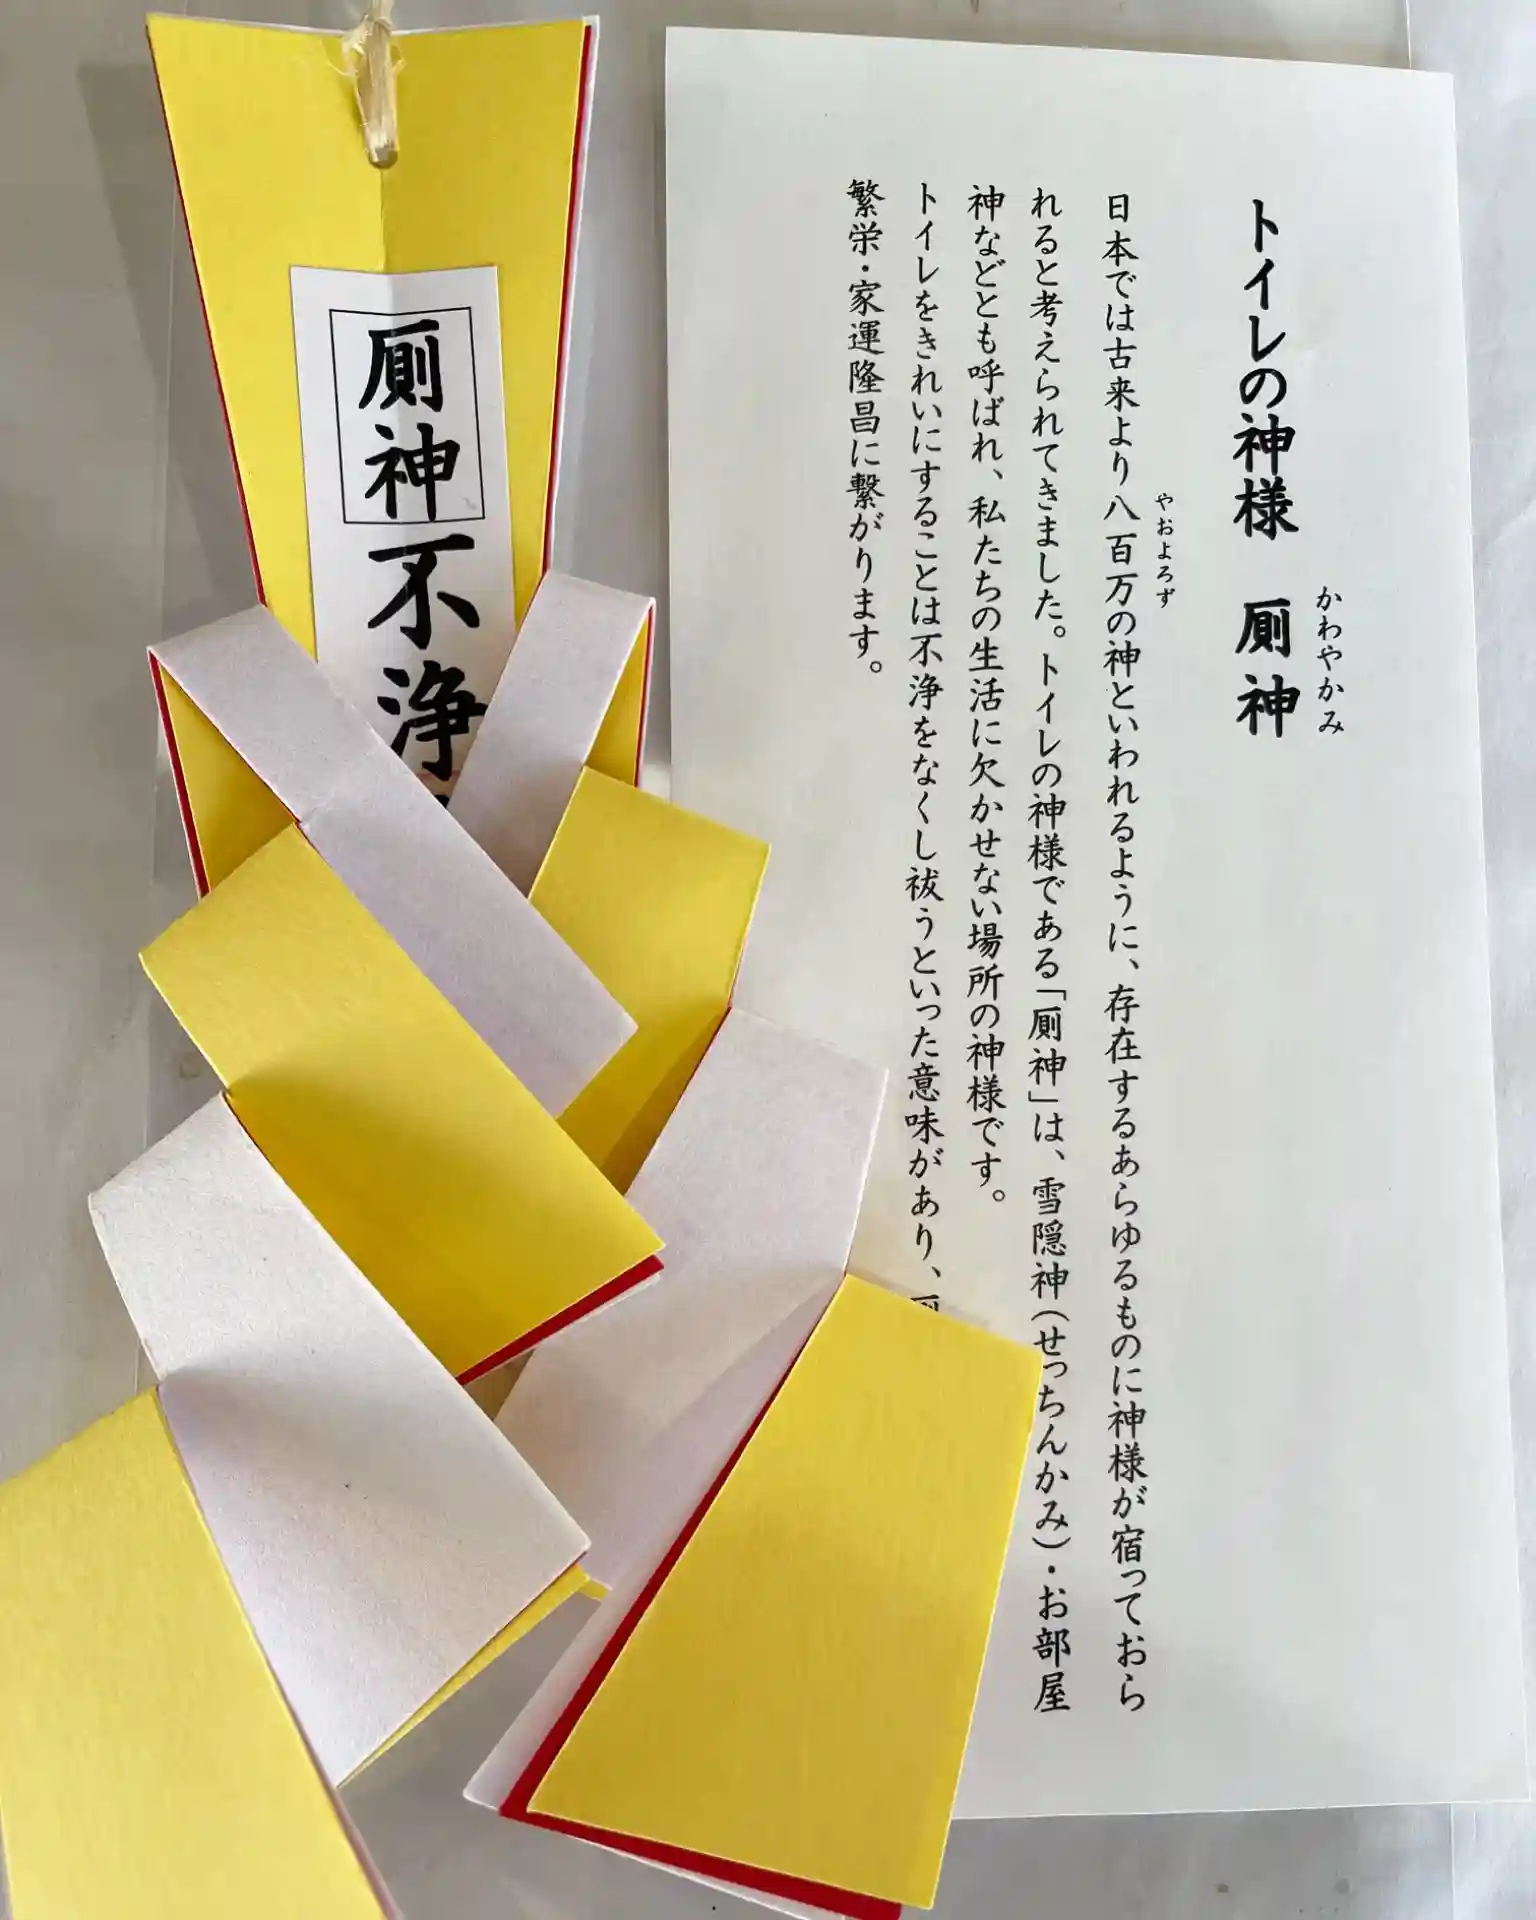 トイレの神様　厠神
かわやかみ
日本では古来より八百万の神といわれるように、存在するあらゆるものに神様が宿っておら
やおよろず
れると考えられてきました。トイレの神様である「厠神」は、雪隠神(せっちんかみ)・お部屋
神などとも呼ばれ、私たちの生活に欠かせない場所の神様です。
トイレをきれいにすることは不浄をなくし祓うといった意味があり、
繁栄・家運隆昌に繋がります。
厠神
不浄